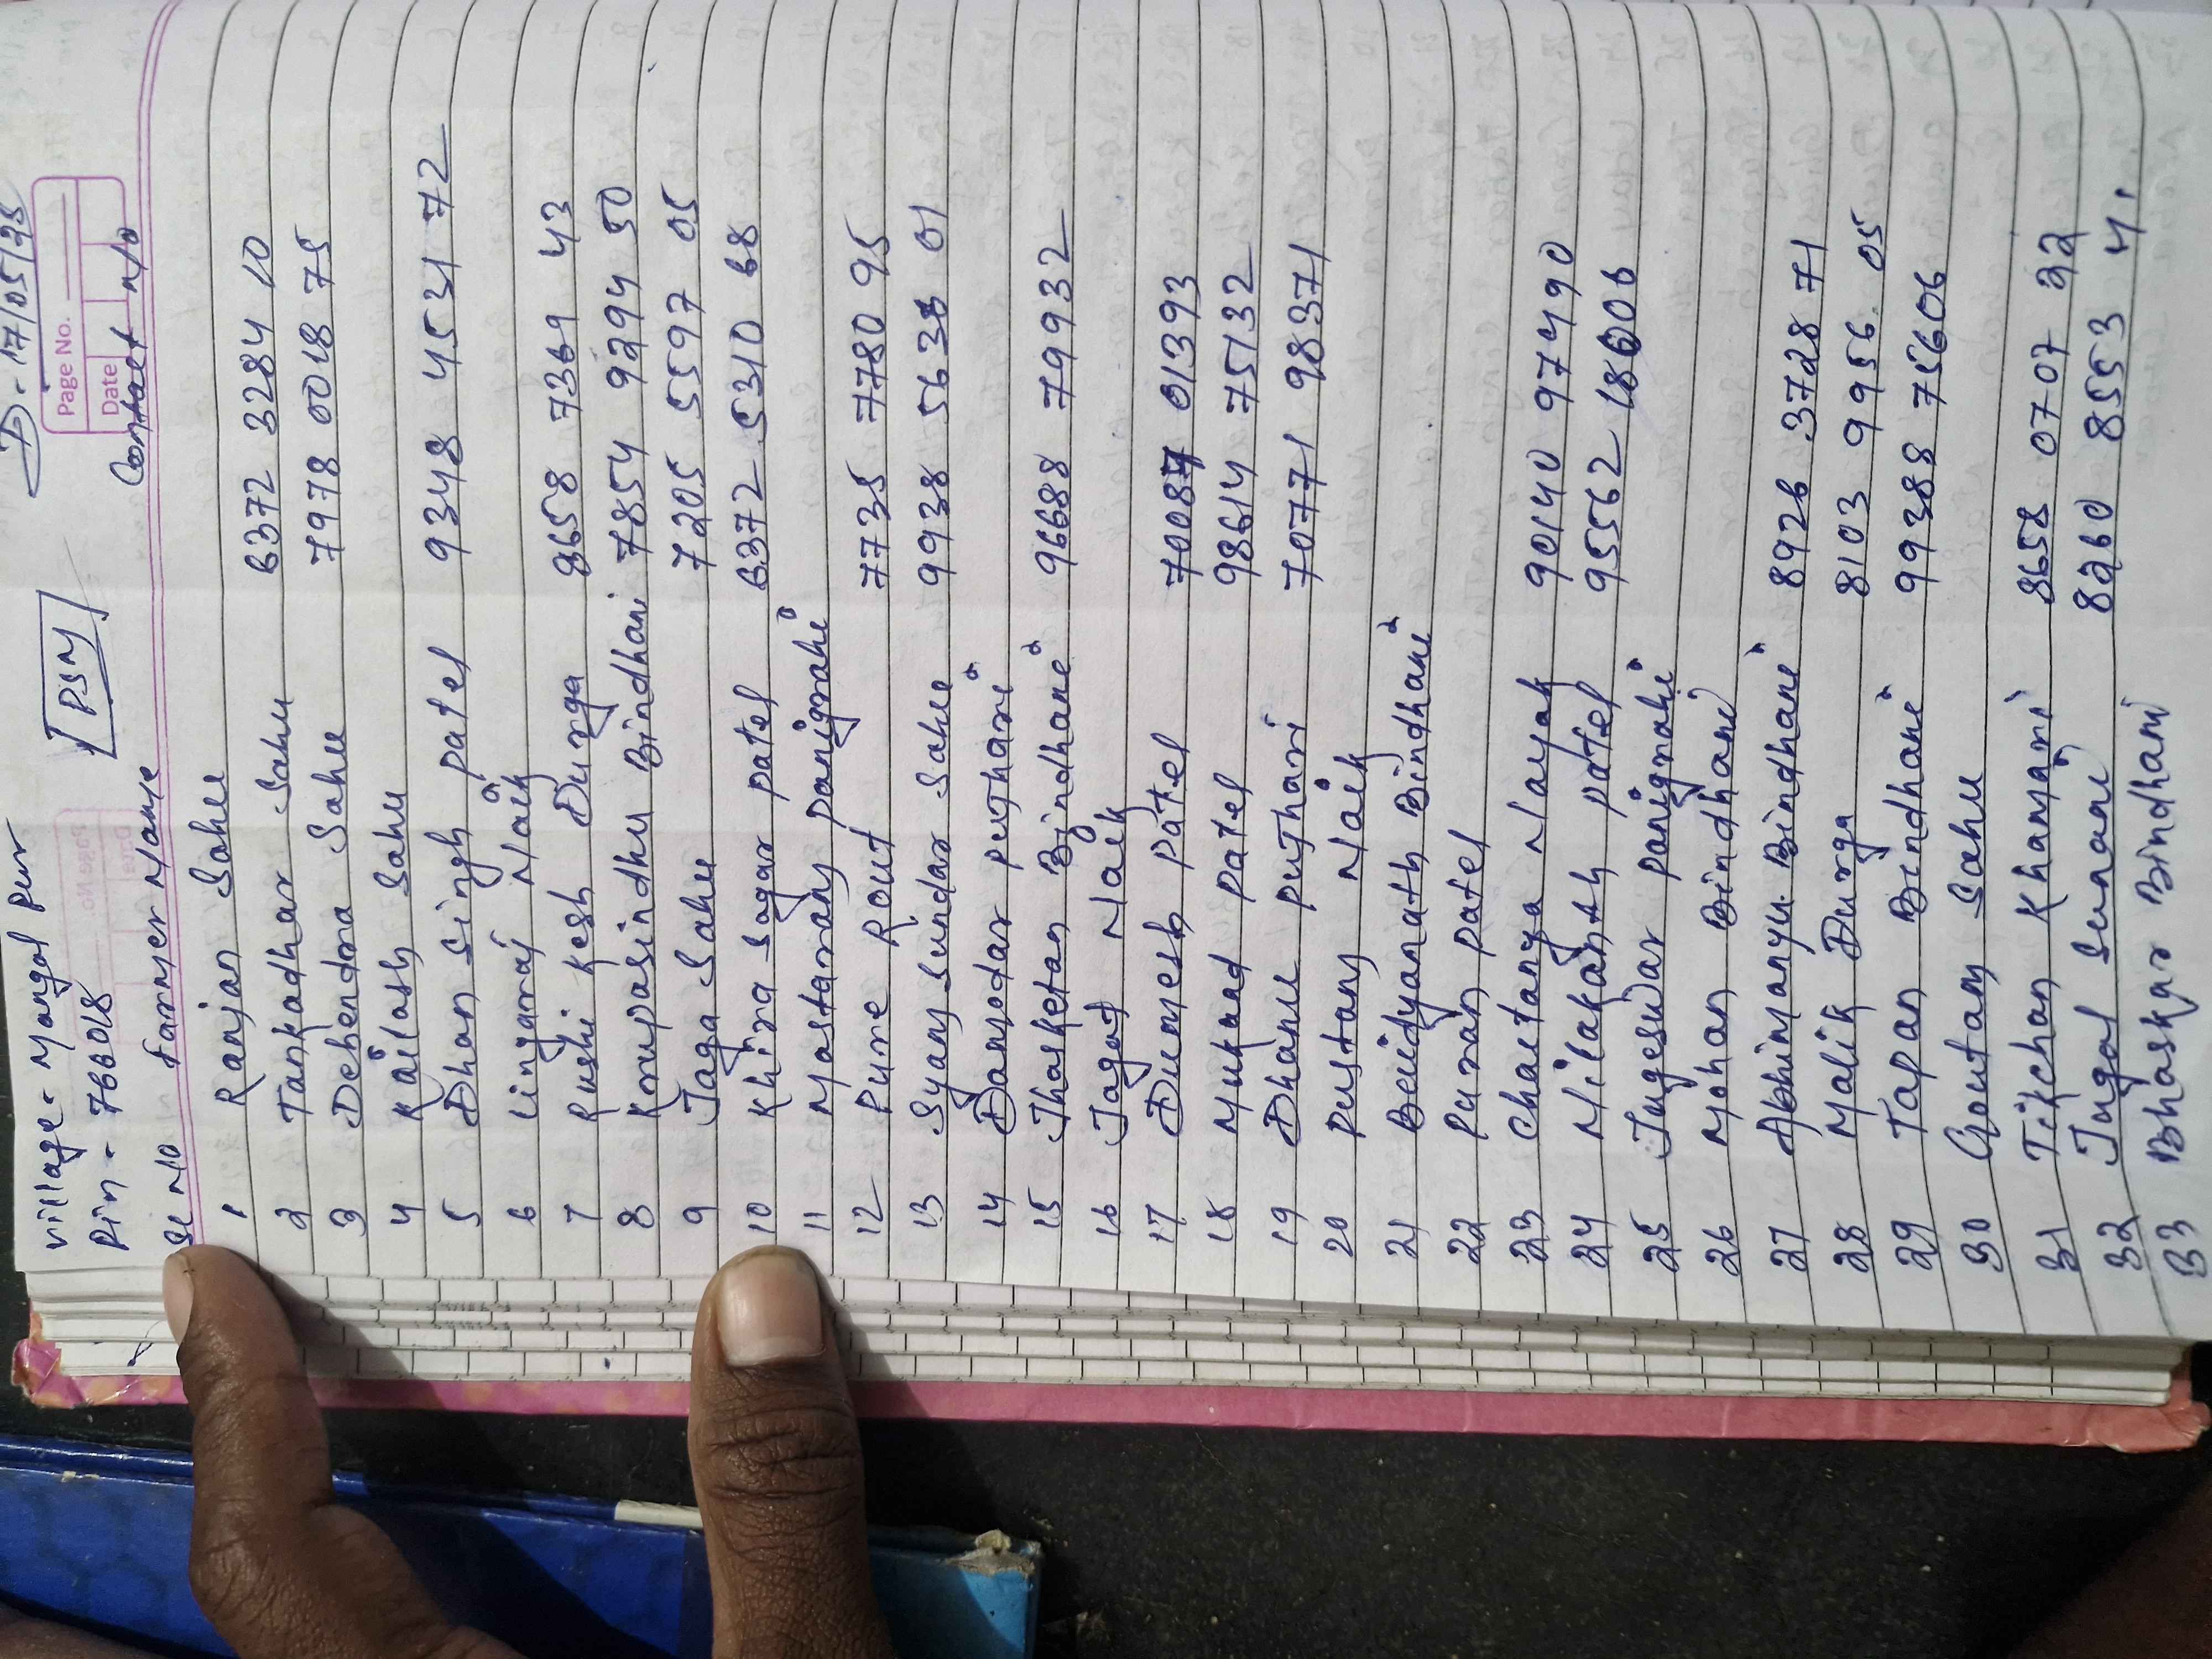 D - 17/05/25
Village - Mangal pur
PSM
Pin - 766018
Page No.
Date
Sl No Farmer Name Contact n/o
1 Ranjan Sahu
2 Tankadhar Sahu 6372 3284 10
3 Debendra Sahu 7978 0018 75
4 Kailash Sahu
5 Dhan Singh patel 9348 4531 72
6 Lingaraj Naik
7 Rushi Kesh Durga 8658 7369 43
8 Krupasindhu Bindhani 7854 9294 50
9 Jaga Sahu 7205 5597 05
10 Khira Sagar patel 6372 5310 68
11 Mastaram panigrahi
12 Pure Rout 7735 7780 95
13 Syam Sundar Sahu 9938 5638 01
14 Damodar pujhari
15 Jhasketan Bindhani 96688 79932
16 Jagat Naik
17 Durnesh patel 70087 01393
18 Mukund patel 98614 75132
19 Dhanu pujhari 70771 98371
20 Pustam Naik
21 Beidyanath Bindhani
22 Puran patel
23 Chaitanya Nayak 90140 97490
24 Nilakanth patel 95562 18006
25 Jugeswar panigrahi
26 Mohan Bindhani
27 Abhimanyu Bindhani 8926 3728 71
28 Malik Durga 8103 9956 05
29 Tapan Bindhani 99388 75606
30 Goutam Sahu
31 Tikchan Khamari 8658 0707 22
32 Jugal Sunani 8260 8553 41
33 Bhaskar Bindhani